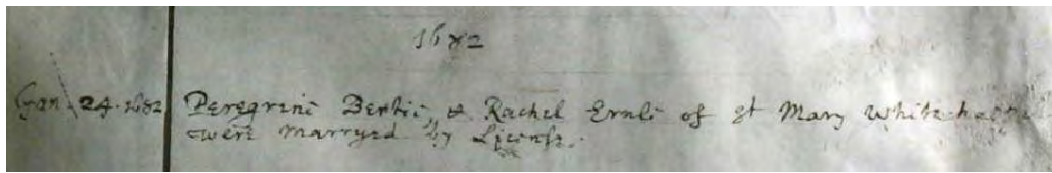 1682
Jan. 24. 1682 Peregrine Bertie, & Rachel Ernle of St Mary Whitechappel
were Marryed by License.